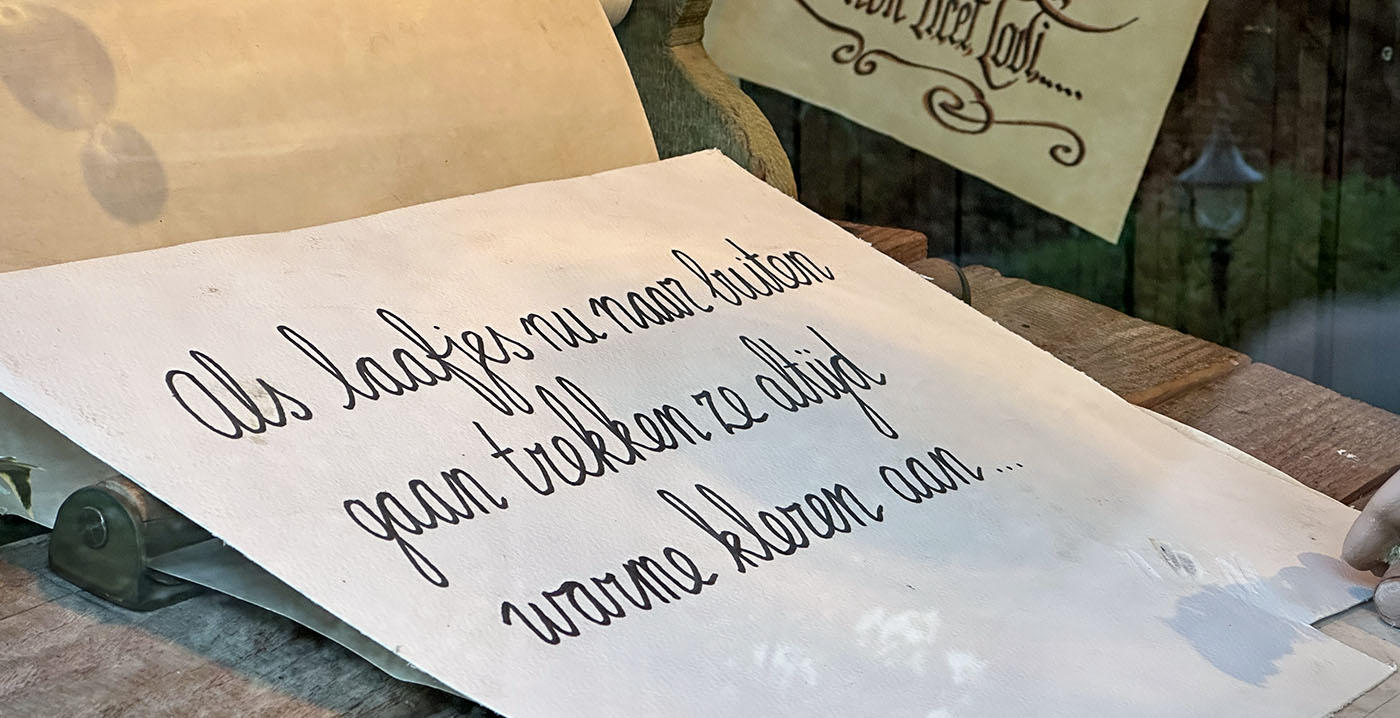 lieef Lodi.....
Als laafjes nu naar buiten
gaan trekken ze altijd
warme kleren aan ...